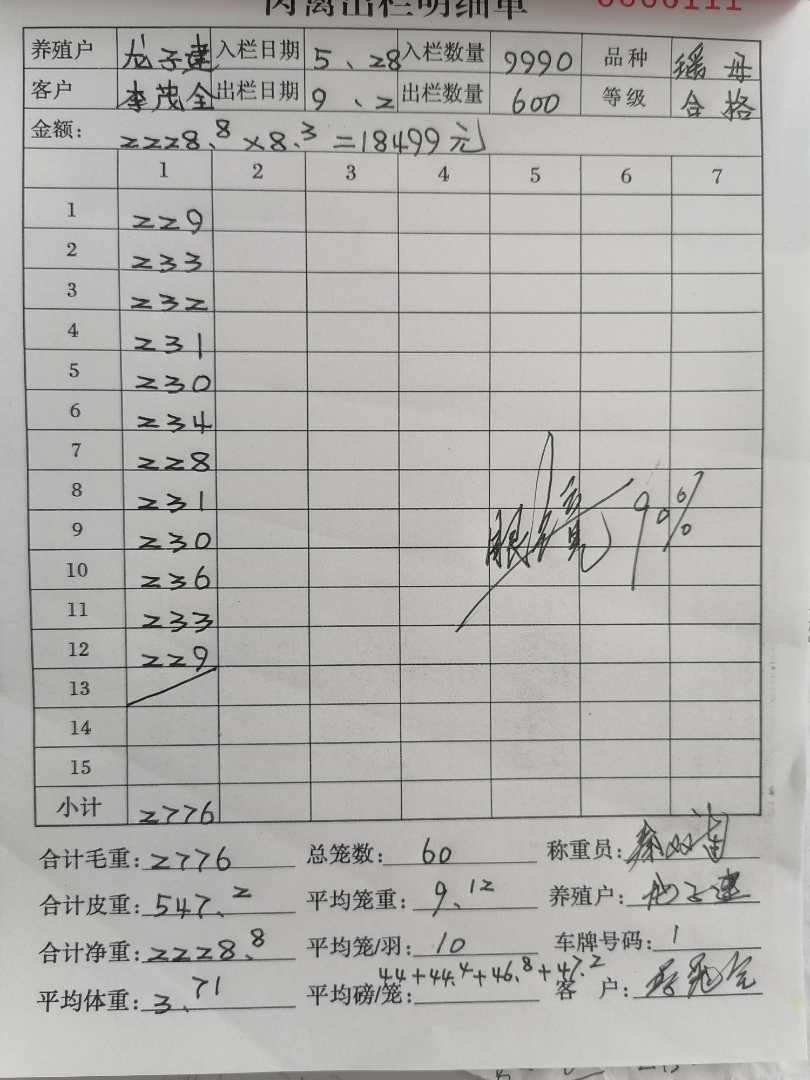 肉禽出栏明细单 0000111
养殖户 龙子建 入栏日期 5、28 入栏数量 9990 品种 瑶母
客户 李茂全 出栏日期 9、2 出栏数量 600 等级 合格
金额: 2228.8×8.3=18499元
1 2 3 4 5 6 7
1 229
2 233
3 232
4 231
5 230
6 234
7 228
8 231
9 230
10 236
11 233
12 229
13
14
15
小计 2776
90%
合计毛重: 2776 总笼数: 60 称重员:
合计皮重: 547.2 平均笼重: 9.12 养殖户: 龙子建
合计净重: 2228.8 平均笼/羽: 10 车牌号码: 1
44+44.4+46.8+47.2
平均体重: 3.71 平均磅/笼: 客 户: